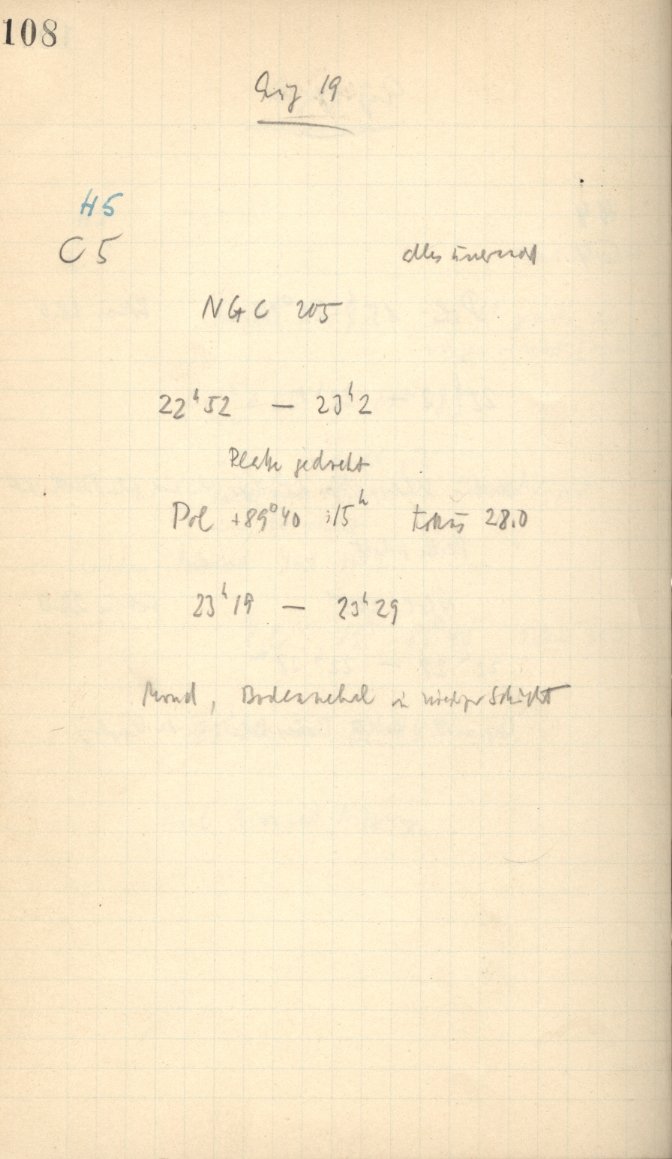 108
Aug 19
H5
C5
alles
NGC 205
22ʰ52 — 23ʰ2
Platte gedreht
Pol +89°40 ; 15ʰ Fokus 28.0
23ʰ19 — 23ʰ29
Mond, Bodennebel in niedriger Schicht